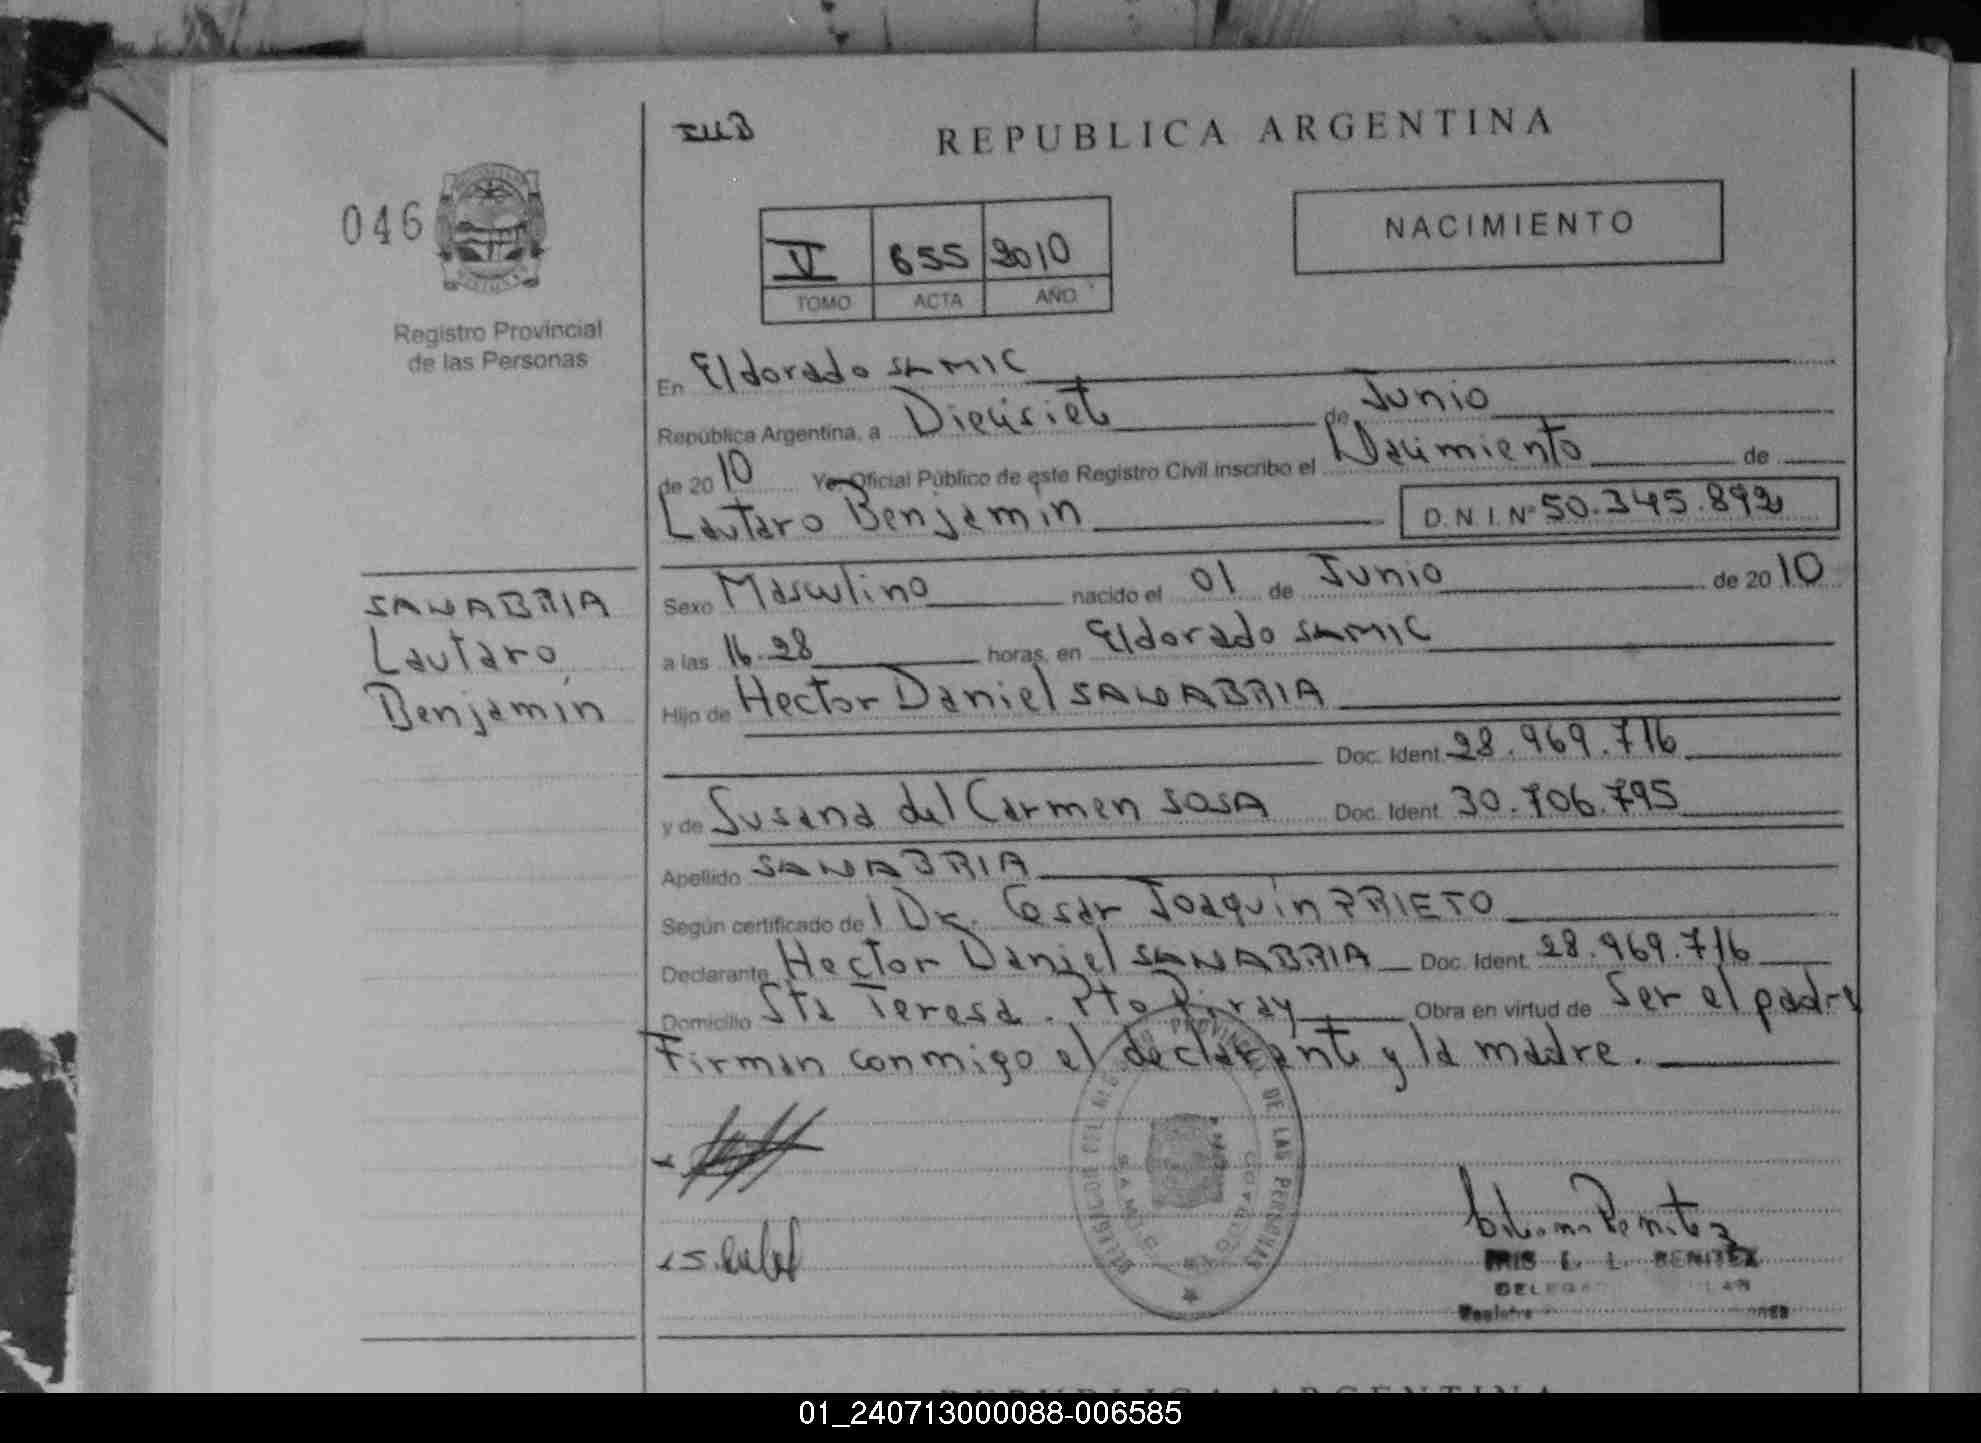 REPUBLICA ARGENTINA
046
NACIMIENTO
V 655 2010
TOMO ACTA AÑO
Registro Provincial
de las Personas
En Eldorado SAMIC
República Argentina, a Diecisiete de Junio
de 2010 Yo Oficial Público de este Registro Civil inscribo el Nacimiento de
Lautaro Benjamín D.N.I. Nº 50.345.892
SANABRIA
Lautaro
Benjamín
Sexo Masculino nacido el 01 de Junio de 2010
a las 16.28 horas, en Eldorado SAMIC
Hijo de Hector Daniel SANABRIA
Doc. Ident. 28.969.716
y de Susana del Carmen SOSA Doc. Ident. 30.706.795
Apellido SANABRIA
Según certificado de l Dr. Cesar Joaquín PRIETO
Declarante Hector Daniel SANABRIA Doc. Ident. 28.969.716
Domicilio Sta Teresa. Pto Piray Obra en virtud de Ser el padre
Firman conmigo el declarante y la madre.
DE LAS PERSONAS
S.A.M.I.C.
ELDORADO
IRIS E. L. BENITEZ
REPUBLICA ARGENTINA
01_240713000088-006585